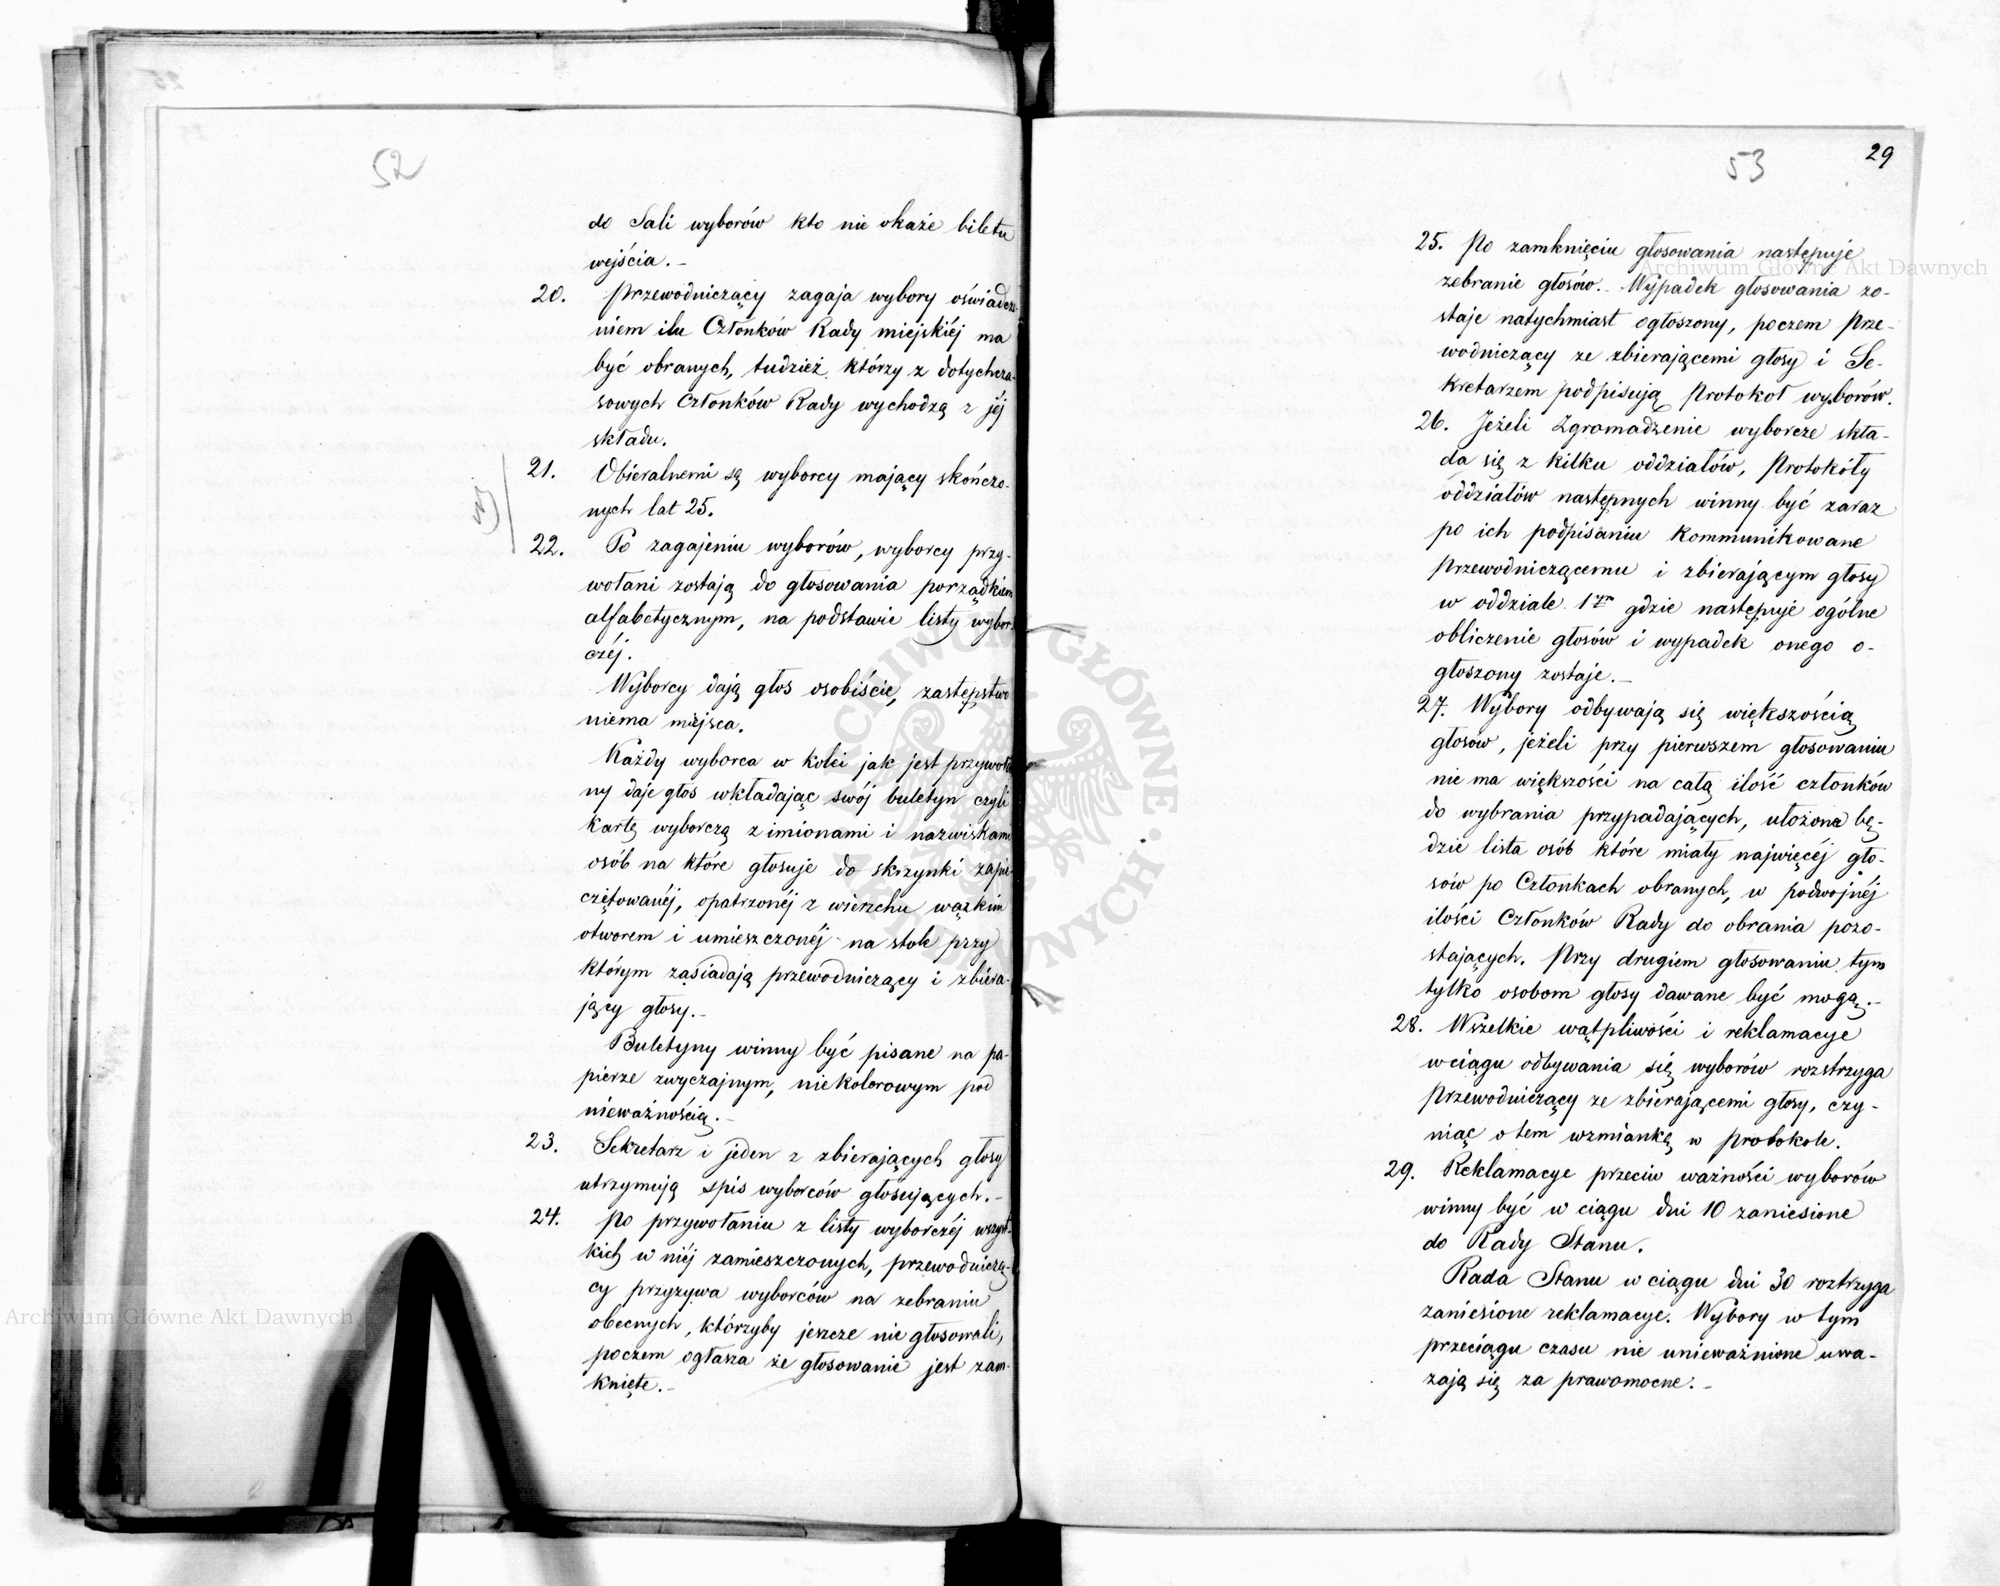 52
do Sali wyborów kto nie okaże biletu
wejścia. –
20. Przewodniczący zagaja wybory oświadcze-
niem ilu Członków Rady miejskiéj ma
być obranych, tudzież którzy z dotychcza-
sowych Członków Rady wychodzą z jéj
składu.
21. Obieralnemi są wyborcy mający skończo-
nych lat 25.
22. Po zagajeniu wyborów, wyborcy przy-
wołani zostają do głosowania porządkiem
alfabetycznym, na podstawie listy wybor-
czéj.
Wyborcy dają głos osobiście, zastępstwo
niema miejsca.
Każdy wyborca w kolei jak jest przywoła
ny daje głos wkładając swój buletyn czyli
kartę wyborczą z imionami i nazwiskami
osób na które głosuje do skrzynki zapie
czętowanéj, opatrzonéj z wierzchu wązkim
otworem i umieszczonéj na stole przy
którym zasiadają przewodniczący i zbiera-
jący głosy. –
Buletyny winny być pisane na pa-
pierze zwyczajnym, niekolorowym pod
nieważnością. –
23. Sekretarz i jeden z zbierających głosy
utrzymują spis wyborców głosujących. –
24. Po przywołaniu z listy wyborczéj wszyst-
kich w niéj zamieszczonych, przewodniczą-
cy przyzywa wyborców na zebraniu
obecnych, którzyby jeszcze nie głosowali,
poczem ogłasza że głosowanie jest zam-
knięte. –
53
29
25. Po zamknięciu głosowania następuje
zebranie głosów. Wypadek głosowania zo-
staje natychmiast ogłoszony, poczem Prze-
wodniczący ze zbierającemi głosy i Se-
kretarzem podpisują Protokół wyborów.
26. Jeżeli Zgromadzenie wyborcze skła-
da się z kilku oddziałów, Protokóły
oddziałów następnych winny być zaraz
po ich podpisaniu kommunikowane
Przewodniczącemu i zbierającym głosy
w oddziale 1ym gdzie następuje ogólne
obliczenie głosów i wypadek onego o-
głoszony zostaje. –
27. Wybory odbywają się większością
głosów, jeżeli przy pierwszem głosowaniu
nie ma większości na całą ilość członków
do wybrania przypadających, ułożona bę-
dzie lista osób które miały najwięcéj gło-
sów po Członkach obranych, w podwojnéj
ilości Członków Rady do obrania pozo-
stających. Przy drugiem głosowaniu tym
tylko osobom głosy dawane być mogą. –
28. Wszelkie wątpliwości i reklamacye
w ciągu odbywania się wyborów rozstrzyga
Przewodniczący ze zbierającemi głosy, czy-
niąc o tem wzmiankę w protokole.
29. Reklamacye przeciw ważności wyborów
winny być w ciągu dni 10 zaniesione
do Rady Stanu.
Rada Stanu w ciągu dni 30 roztrzyga
zaniesione reklamacye. Wybory w tym
przeciągu czasu nie unieważnione uwa-
żają się za prawomocne. –
Archiwum Główne Akt Dawnych
Archiwum Główne Akt Dawnych
ARCHIWUM GŁÓWNE AKT DAWNYCH